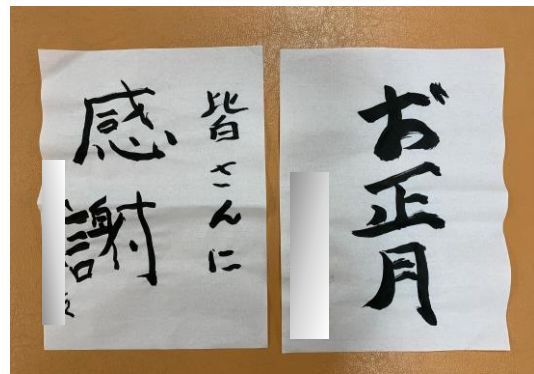 お正月
皆さんに
感謝